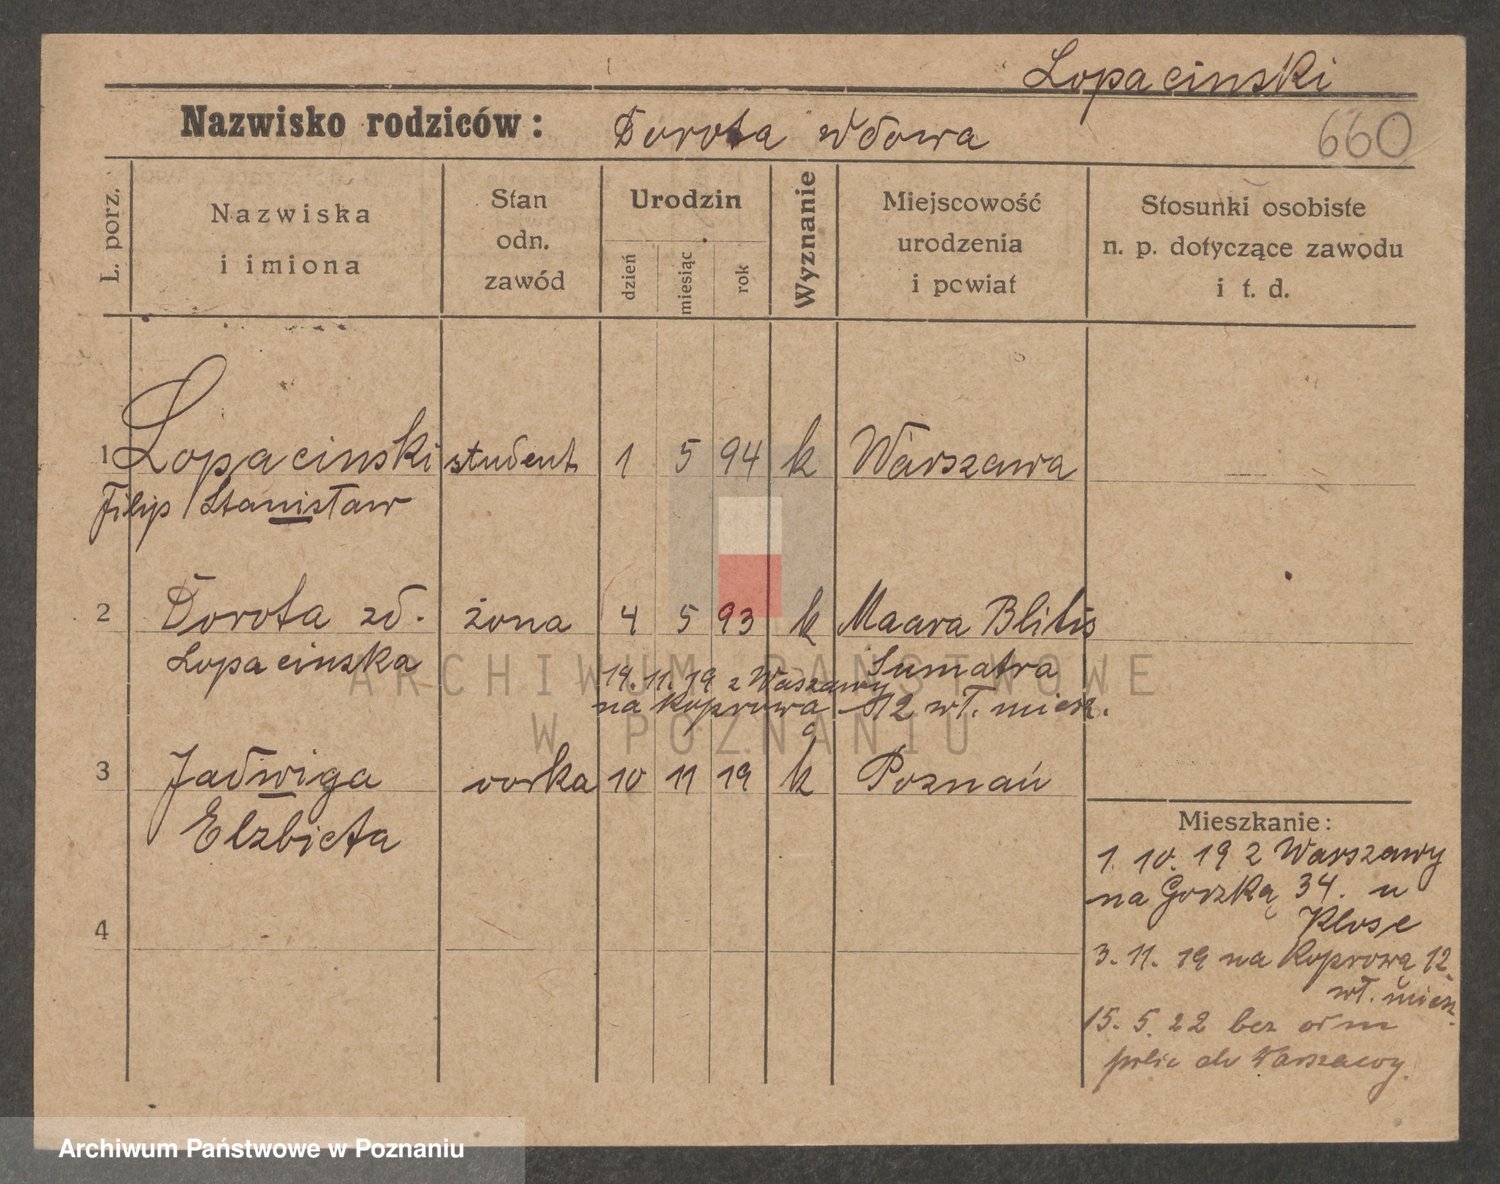 Lopacinski
Nazwisko rodziców: Dorota wdowa
660
L. porz.
Nazwiska
i imiona
Stan
odn.
zawód
Urodzin
dzień
miesiąc
rok
Wyznanie
Miejscowość
urodzenia
i powiat
Stosunki osobiste
n. p. dotyczące zawodu
i t. d.
1 Lopacinski student 1 5 94 k Warszawa
Filip Stanisław
2 Dorota zd. żona 4 5 93 k Maara Blitis
Lopacinska Sumatra
19. 11. 19 z Waszawy
na Koprowa 12 wł. miesz.
3 Jadwiga corka 10 11 19 k Poznań
Elzbieta
4
Mieszkanie:
1. 10. 19 z Warszawy
na Gorzką 34. u
Klose
3. 11. 19 na Koprową 12
wł. miesz.
15. 5. 22 bez odm
polic do Warszawy.
ARCHIWUM PAŃSTWOWE
W POZNANIU
Archiwum Państwowe w Poznaniu